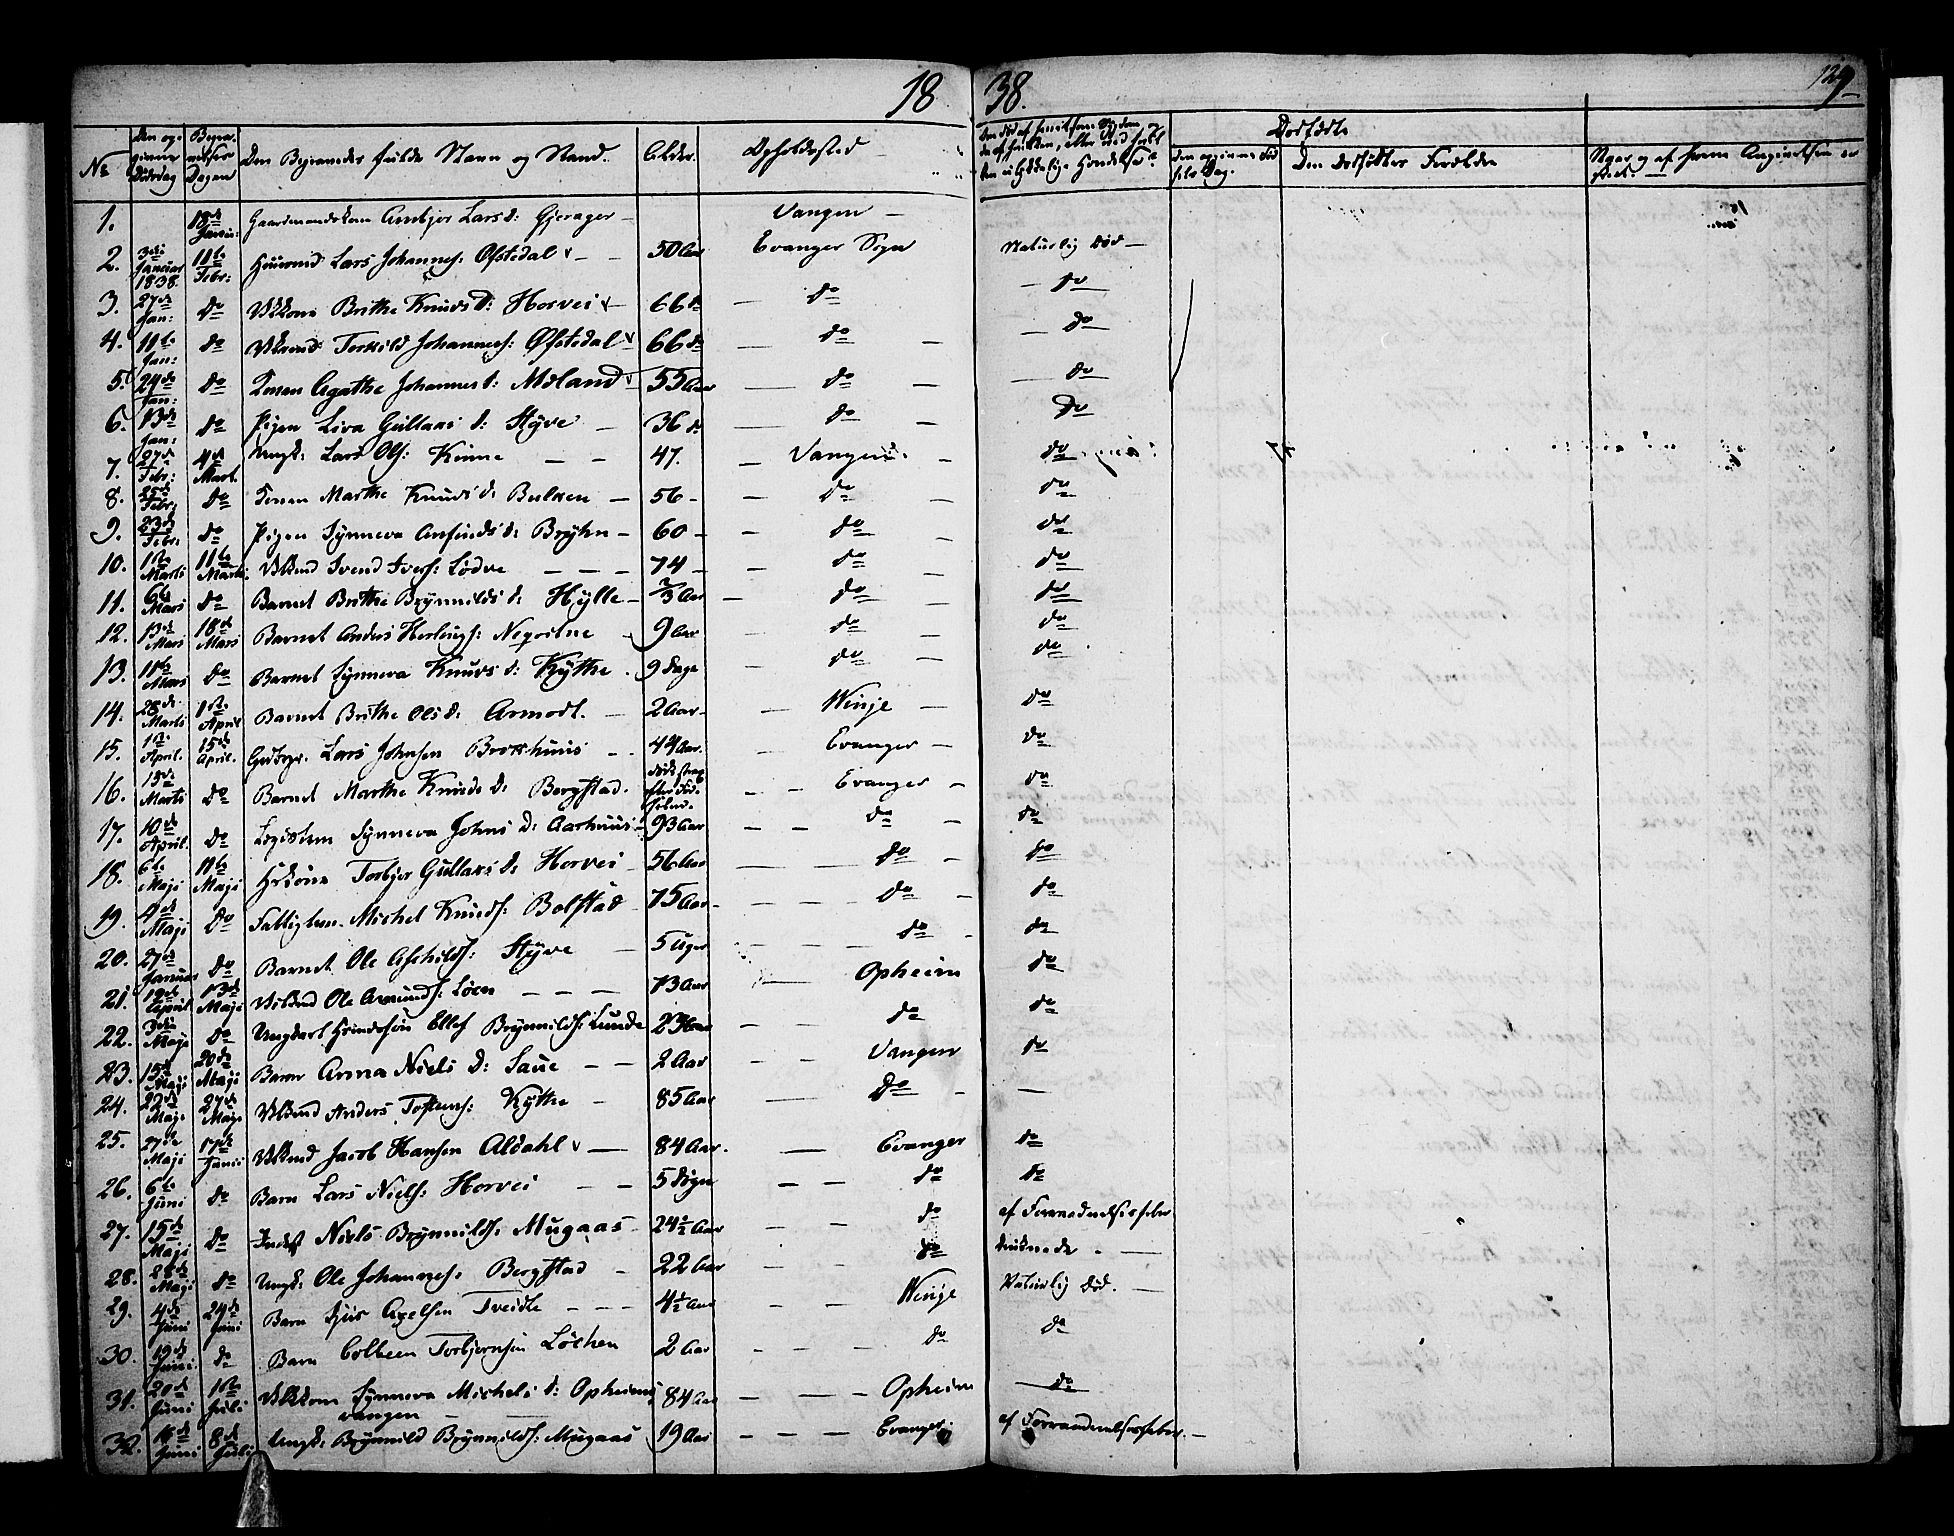 18 38. 129
No Den og- givne Dødsdag Begra- velses Dagen Den Begravedes fulde Navn og Stand. Alder. Opholdssted Dødfødte
Den opgivne Fød- sels Dag. Den dødfødtes Forældre
1. 18de Janu: Gaardmandskone Ambjør Lars d: Gjerager Vangen
2. 3die Januar 1838. 11te Febr: Huusmd Lars Johannes: Øfstedal 50 Aar Evanger Sogn Naturlig Død
3. 27de Jan: do Vlkone Brithe Knuds d: Horvei 66 do do do
4. 11te Jan: do Vlkmd: Torkild Johannes: Øfstedal 66 do do do
5. 24de Jan: do Konen Agathe Johannes d: Moland 55 Aar do do
6. 13de Jan: do Pigen Liva Gullaks d: Styve 36 do do do
7. 27de Febr: 4de Mart. Ungk: Lars Ols: Kinne 47. Vangen do
8. 25de Febr: do Konen Marthe Knuds d: Bulken 56 do do
9. 23de Febr: do Pigen Synneva Anfinds d: Bryhn 60 do do
10. 1ste Marti 11te Marti Vlkmd Svend Ivers: Lødve 74 do do
11. 6te Mars do Barnet Brithe Brynnilds d: Hylle 2/3 Aar do do
12. 13de Mars 18de Mars Barnet Anders Herleugs: 9 Aar do do
13. 11te Mars do Barnet Synneva Knuds d: Kythe 9 Dage do do
14. 28de Marti 1ste April Barnet Brithe Ols d: Armodt. 2 Aar Winje do
15. 1ste April. 15de April. Lars Johnsen Brekhuus 44 Aar. Evanger do
16. 15de Marti do Barnet Marthe Knuds d: Bergstad. døde strax efter Fød- selen. Evanger do
17. 10de April. do Synneva Johns d: Aarhuus 93 Aar do do
18. 6te Maji 11te Maji Torbjør Gullaks d: Horvei 56 Aar do do
19. 4de Maji do Michel Knuds: Bolstad 75 Aar do do
20. 27de Januar do Barnet Ole Askilds: Styve 5 Uger do do
21. 12te April 13de Maji Vlkmd Ole Amunds: Løen 73 Aar Opheim do
22. 3die Maji do Ungkarl Ellef Brynnilds: Lunde 23 Aar do do
23. 15de Maji 20de Maji Barn Anna Niels d: Saue 2 Aar Vangen do
24. 22de Maji 27de Maji Vlkmd Anders Tostens: Kythe 85 Aar do
25. 27de Maji 17de Junii Vlkmd Jacob Hansen Aldahl 84 Aar. Evanger do
26. 6te Juni do Barn Lars Niels: Horvei 5 Døgn do do
27. 15de Maji do Inds: Niels Brynnilds: Mugaas 24½ Aar do af Forraadnelsesfeber
28. 28de Maji do Ungk: Ole Johannes: Bergstad 22 Aar do druknede
29. 4de Juni 24de Juni Barn Sjur Axelsen Tveidte 4½ Aar Winje Naturlig Død.
30. 19de Juni do Barn Colbeen Torbjørnsen Løchen 2 Aar do do
31. 20de Juni 1ste Juli Vlkkone Synneva Michels d: Opheims- vangen 84 Aar Opheim do
32. 16de Juni 8de Juli Ungk: Brynnild Brynnilds: Mugaas 19 Aar Evanger af Forraadnelsesfeber.